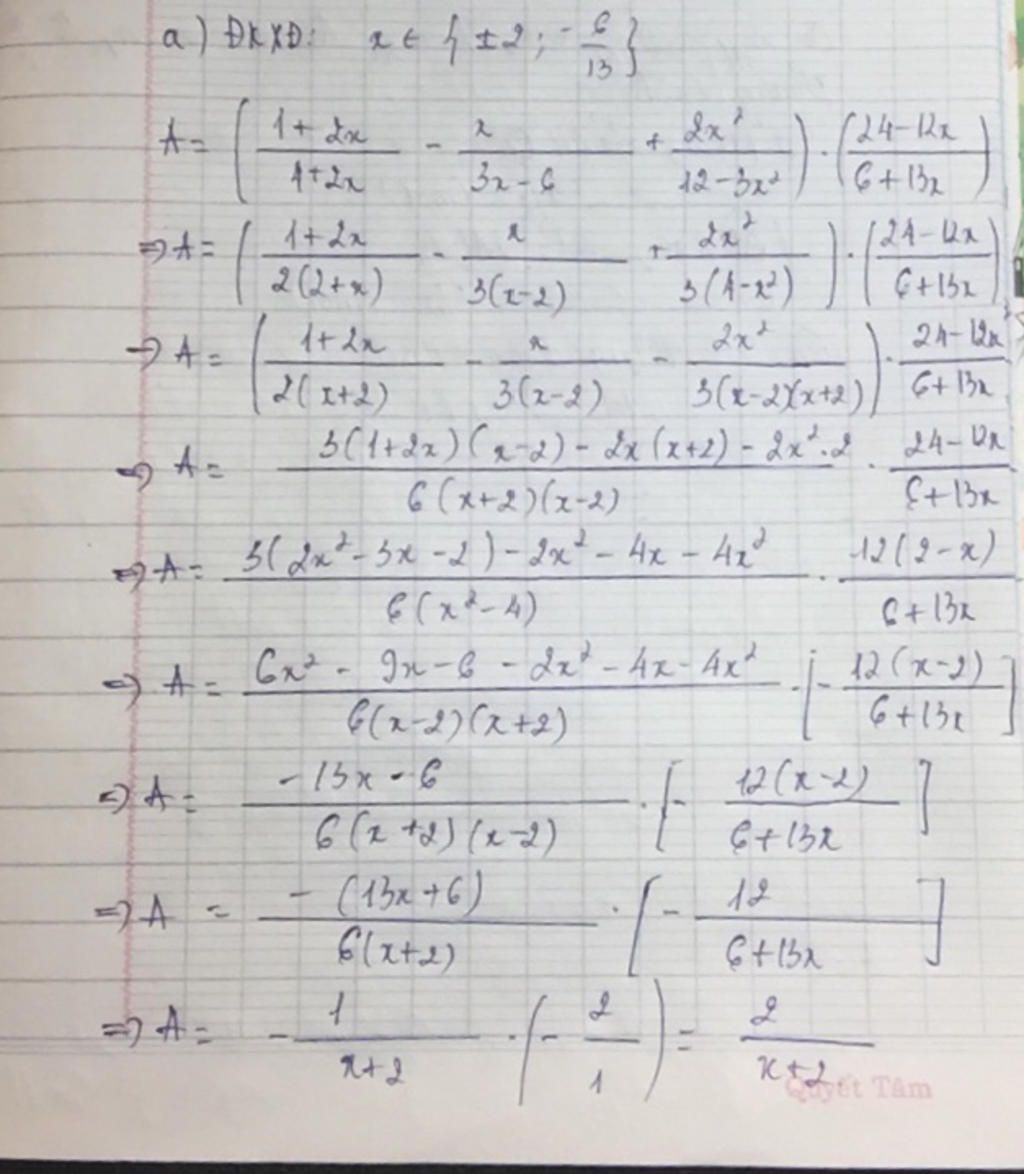 a) ĐKXĐ: x ∈ { ±2 ; -6/13 }
A = ( (1+2x)/(4+2x) - x/(3x-6) + 2x²/(12-3x²) ) . ( (24-12x)/(6+13x) )
=> A = ( (1+2x)/(2(2+x)) - x/(3(x-2)) + 2x²/(3(4-x²)) ) . ( (24-12x)/(6+13x) )
=> A = ( (1+2x)/(2(x+2)) - x/(3(x-2)) - 2x²/(3(x-2)(x+2)) ) . (24-12x)/(6+13x)
=> A = (3(1+2x)(x-2) - 2x(x+2) - 2x².2)/(6(x+2)(x-2)) . (24-12x)/(6+13x)
=> A = (3(2x²-3x-2) - 2x² - 4x - 4x²)/(6(x²-4)) . (12(2-x))/(6+13x)
=> A = (6x² - 9x - 6 - 2x² - 4x - 4x²)/(6(x-2)(x+2)) . [ - (12(x-2))/(6+13x) ]
=> A = (-13x - 6)/(6(x+2)(x-2)) . [ - (12(x-2))/(6+13x) ]
=> A = (-(13x+6))/(6(x+2)) . [ - 12/(6+13x) ]
=> A = - 1/(x+2) . ( - 2/1 ) = 2/(x+2)
Quyết Tâm